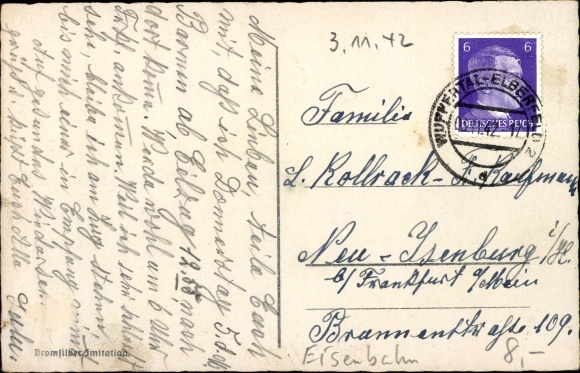 Meine Lieben, teile Euch
mit, daß ich Donnerstag 5. d. M.
Barmen ab Eilzug 12.55, nach
dort komme. Werde wohl um 6 Uhr
Frkf. ankommen. Weil ich sehr schlecht
sehe, bleibe ich am Zug stehen
bis mich einer in Empfang nimmt
Auf gesundes Wiedersehn
grüßt u. küßt Euch Alle
Bromsilber-Imitation
3.11.42
6 6
DEUTSCHES REICH
WUPPERTAL-ELBERFELD 2
Familie
L. Kollrack-Kaufmann
Neu-Isenburg i/H.
b/Frankfurt a/Main
Brunnenstraße 109.
Eisenbahn
8,-